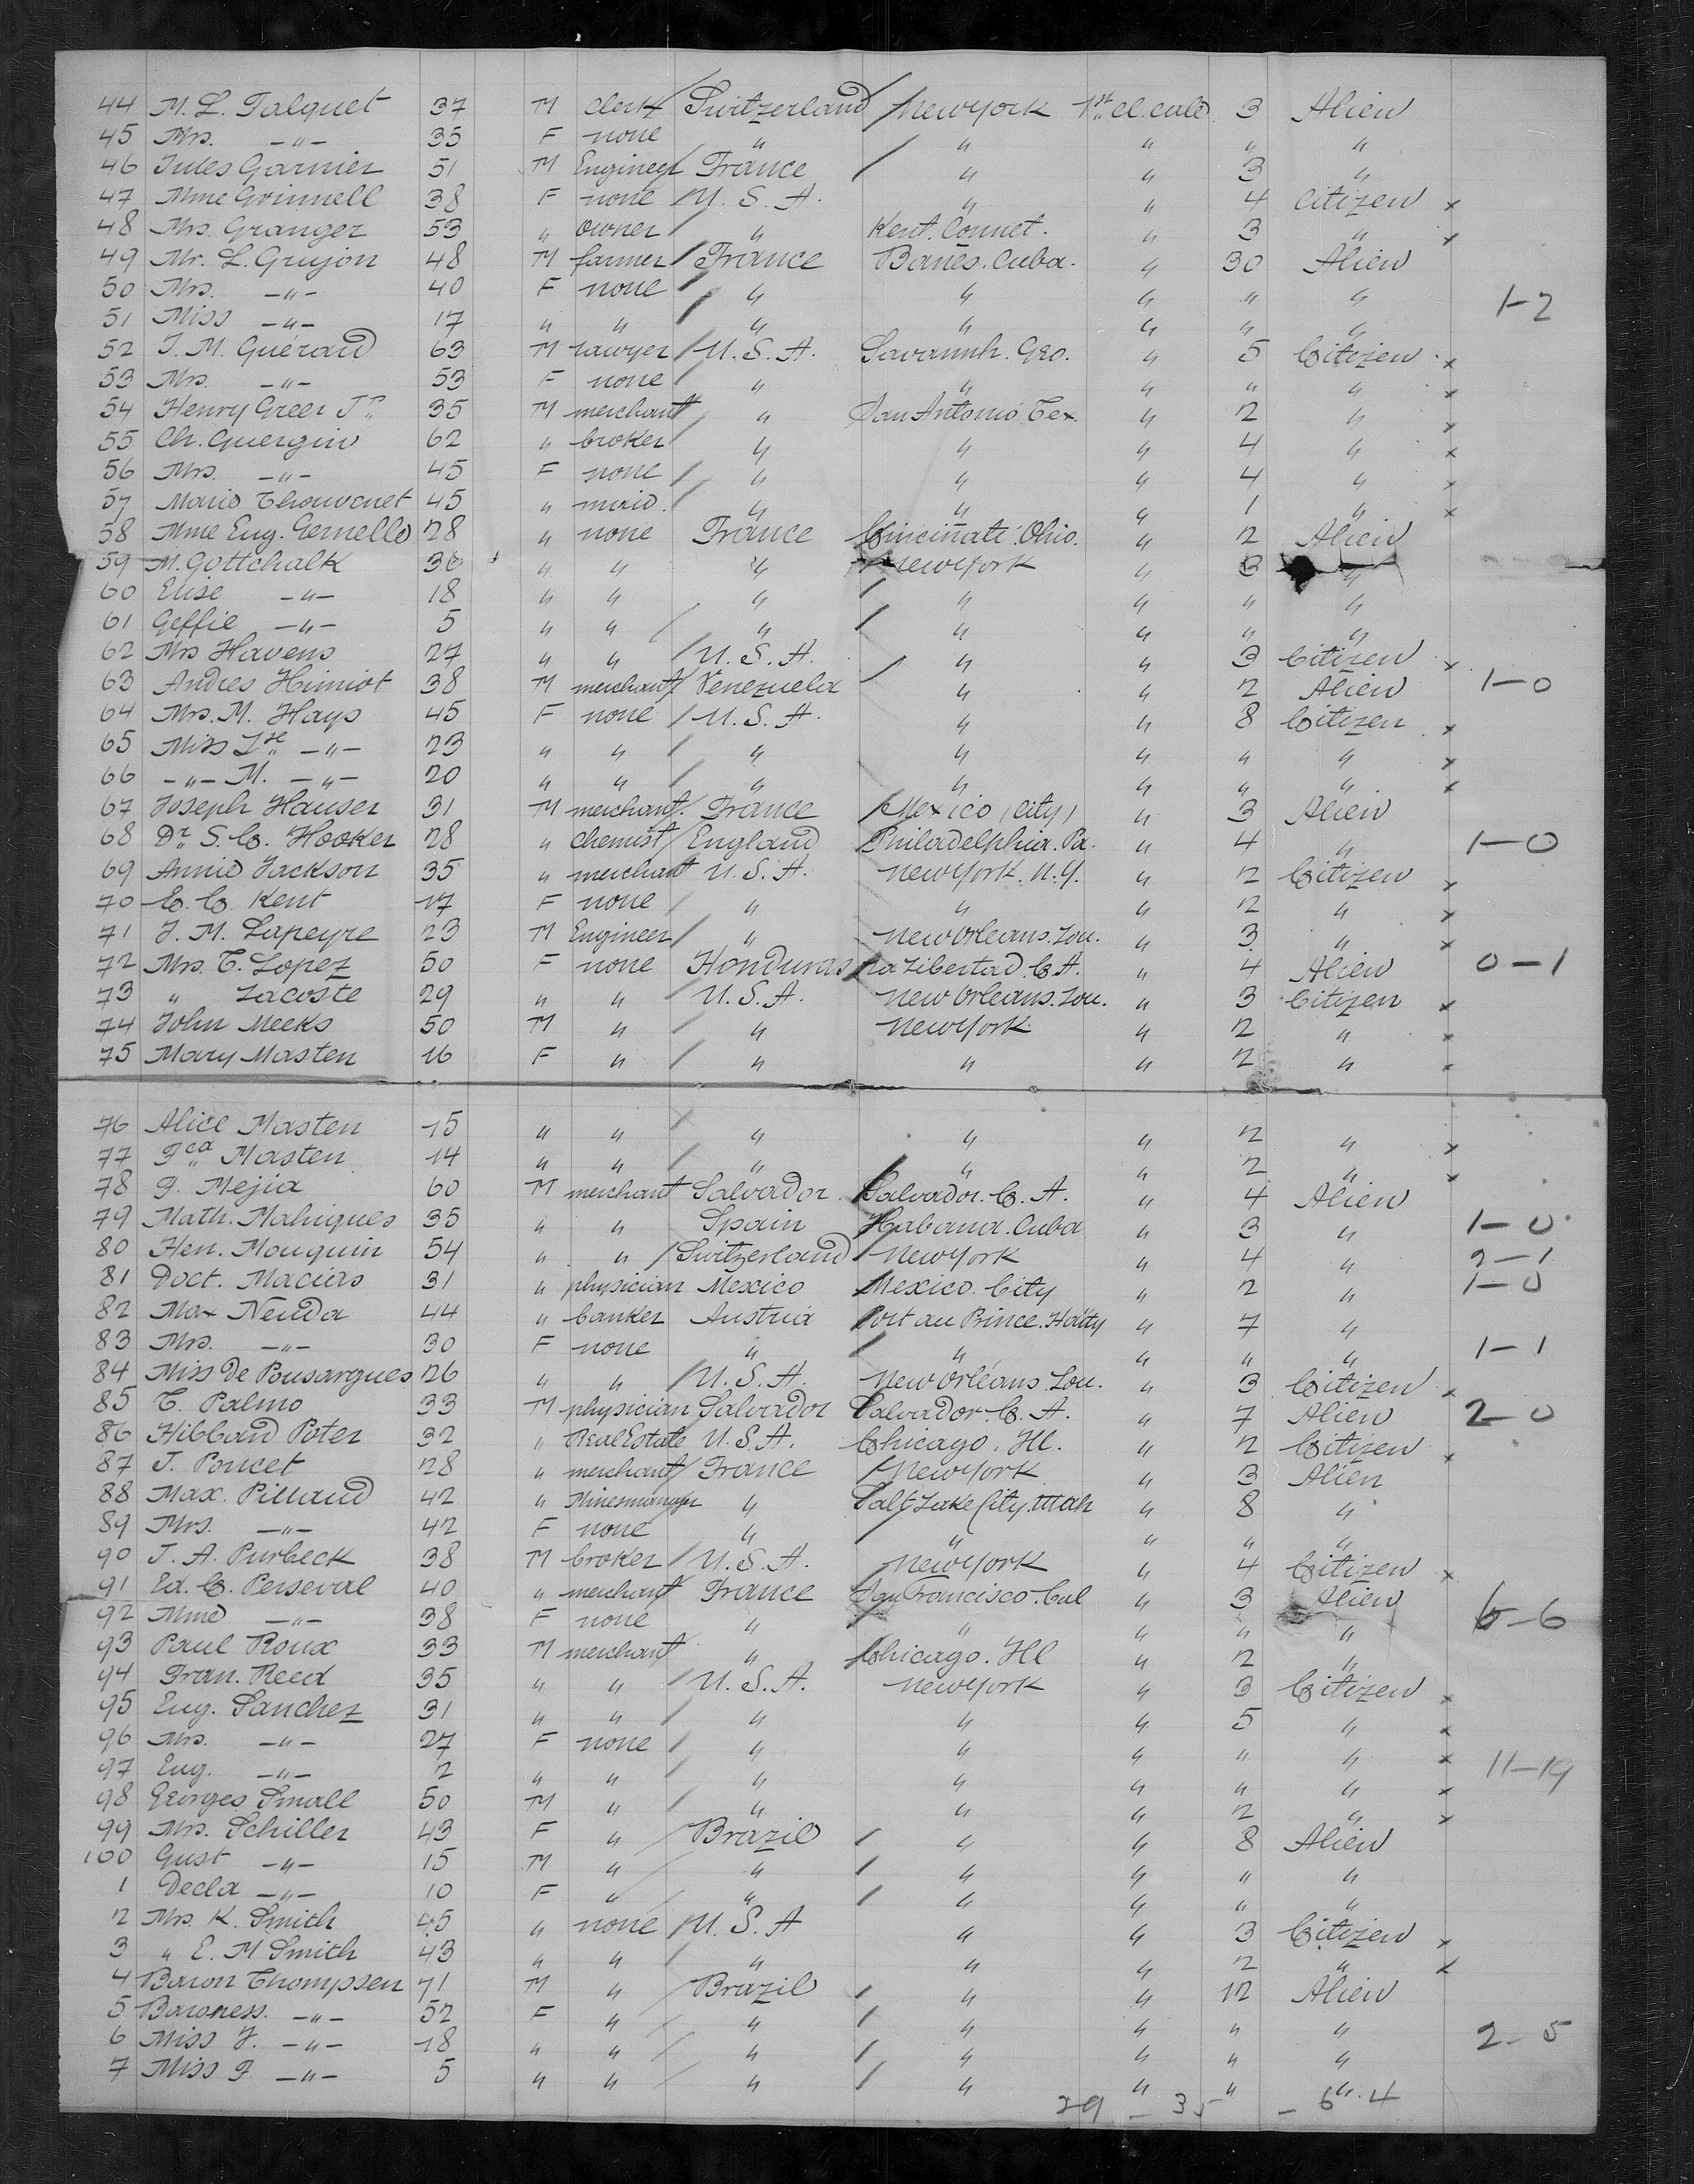 44 M. L. Talquet 37 M clerk Switzerland New York 1st cl. cab. 3 Alien
45 Mrs. -"- 35 F none " " " " "
46 Jules Garnier 51 M Engineer France " " 3 "
47 Mme Grinnell 38 F none U. S. A. " " 4 Citizen x
48 Mrs. Granger 53 " owner " Kent. Connet. " 3 " x
49 Mr. L. Grujon 48 M farmer France Banes. Cuba. " 30 Alien
50 Mrs. -"- 40 F none " " " " " 1-2
51 Miss -"- 17 " " " " " " "
52 J. M. Guérard 63 M lawyer U. S. A. Savannh. Geo. " 5 Citizen x
53 Mrs. -"- 53 F none " " " " " x
54 Henry Greer Jr 35 M merchant " San Antonio Tex. " 2 " x
55 Ch. Guergin 62 " broker " " " 4 " x
56 Mrs. -"- 45 F none " " " 4 " x
57 Marie Thouvenet 45 " maid. " " " 1 " x
58 Mme Eug. Gernello 28 " none France Cincinati. Ohio. " 2 Alien
59 M. Gottchalk 36 " " " New York " 3 "
60 Elise -"- 18 " " " " " " "
61 Geffie -"- 5 " " " " " " "
62 Mrs Havens 27 " " U. S. A. " " 3 Citizen x
63 Andres Himiot 38 M merchant Venezuela " " 2 Alien 1-0
64 Mrs. M. Hays 45 F none U. S. A. " " 8 Citizen x
65 Miss Lse -"- 23 " " " " " " " x
66 -"- M. -"- 20 " " " " " " " x
67 Joseph Hauser 31 M merchant. France Mexico (City) " 3 Alien
68 Dr S. C. Hooker 28 " chemist England Philadelphia. Pa. " 4 " 1-0
69 Annie Jackson 35 " merchant U. S. A. New York. N. Y. " 2 Citizen x
70 C. C. Kent 17 F none " " " 2 " x
71 J. M. Lapeyre 23 M Engineer " New Orleans. Lou. " 3 " x
72 Mrs. T. Lopez 50 F none Honduras La Libertad. C. A. " 4 Alien 0-1
73 " Lacoste 29 " " U. S. A. New Orleans. Lou. " 3 Citizen x
74 John Meeks 50 M " " New York " 2 " x
75 Mary Masten 16 F " " " " 2 " x
76 Alice Masten 15 " " " " " 2 " x
77 Fca Masten 14 " " " " " 2 " x
78 J. Mejia 60 M merchant Salvador Salvador. C. A. " 4 Alien
79 Math. Mahiques 35 " " Spain Habana. Cuba " 3 " 1-0
80 Hen. Mouquin 54 " " Switzerland New York " 4 " 2-1
81 Doct. Macias 31 " physician Mexico Mexico City " 2 " 1-0
82 Max Neuda 44 " banker Austria Port au Prince. Haïty " 7 "
83 Mrs. -"- 30 F none " " " " " 1-1
84 Miss De Pousargues 26 " " U. S. A. New Orleans. Lou. " 3 Citizen x
85 T. Palmo 33 M physician Salvador Salvador. C. A. " 7 Alien 2-0
86 Hibband Poter 32 " Real Estate U. S. A. Chicago. Ill. " 2 Citizen x
87 J. Poucet 28 " merchant France New York " 3 Alien
88 Max. Pillaud 42 " Minesmanager " Salt Lake City. Utah " 8 "
89 Mrs. -"- 42 F none " " " " "
90 J. A. Purbeck 38 M broker U. S. A. New York " 4 Citizen x
91 Ed. C. Perseval 40 " merchant France San Francisco. Cal " 3 Alien
92 Mme -"- 38 F none " " " " " 6-6
93 Paul Roux 33 M merchant " Chicago. Ill " 2 "
94 Fran. Reed 35 " " U. S. A. New York " 3 Citizen x
95 Eug. Sanchez 31 " " " " " 5 " x
96 Mrs. -"- 27 F none " " " " " x
97 Eug. -"- 2 " " " " " " " x 11-19
98 Georges Small 50 M " " " " 2 " x
99 Mrs. Schiller 43 F " Brazil " " 8 Alien
100 Gust -"- 15 M " " " " " "
1 Decla -"- 10 F " " " " " "
2 Mrs. K. Smith 45 " none U. S. A " " 3 Citizen x
3 " E. M Smith 43 " " " " " 2 " x
4 Baron Thompsen 71 M " Brazil " " 12 Alien
5 Baroness. -"- 52 F " " " " " "
6 Miss J. -"- 18 " " " " " " " 2-5
7 Miss F -"- 5 " " " " " " "
29 - 35 - 64